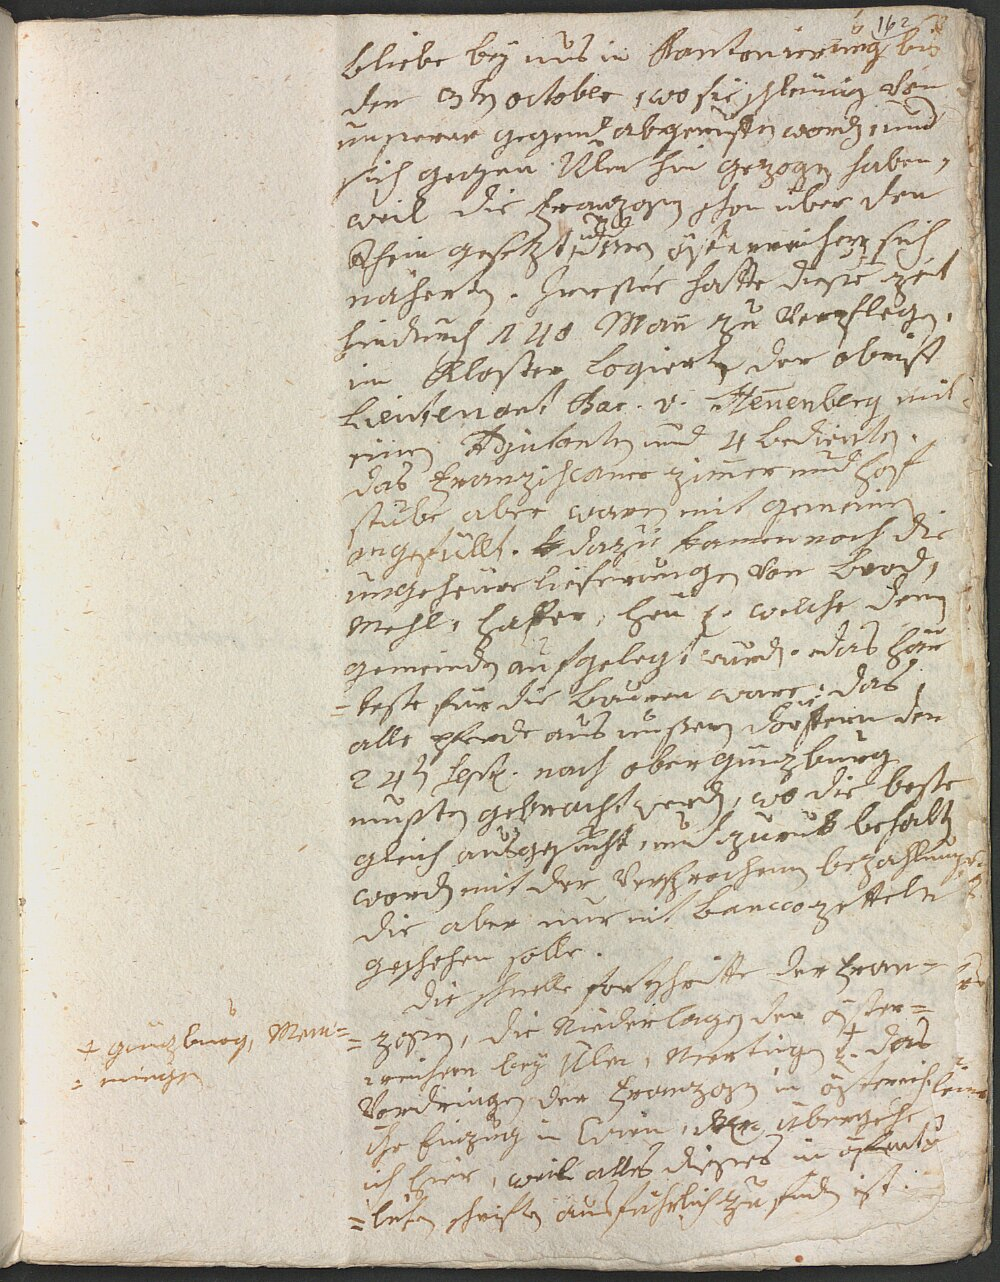 162
bliebe bey uns in Kantonierung bis
den 3tn octobr, wo sie schleunig von
unserer gegend abgeruffen worden, und
sich gegen Ulm hin gezogen haben,
weil die Franzosen schon über den
Rhein gesetzt, und den österreichern sich
näherten. Irrsee hatte diese zeit
hindurch 1140 Mann zu verpflegen.
im Kloster logierten der obrist
Lieutenant Bar. v. mit
einem Adjutanten und 4 bedienten.
das Franziscaner zimmer und Hof
stube aber waren mit gemeinen
angefüllt. dazu kamen noch die
ungeheure lieferungen von brod,
Mehl, Haffer, Heu z. welche denn
gemeinden aufgelegt wurden. das här
= teste für die bauren ware, das
alle pferde aus unsern dörffern den
24tn Sept. nach obergünzburg
mußten gebracht werden, wo die beste
gleich ausgesucht, und zurück behalten
worden mit der versprochenen bezahlung,
die aber nur mit bancozetteln
geschehen solle.
Die schnelle fortschritte der Fran=
= zosen, die Niederlagen der öster=
reichern bey Ulm, Wertingen + z. das
+ günzburg, Mem=
= mingen
Vordringen der Franzosen in österreich,
ihr Einzug in Wien, übergehe
ich hier, weil alles dieses in öffent
= lichen schriften ausführlich zu finden ist.